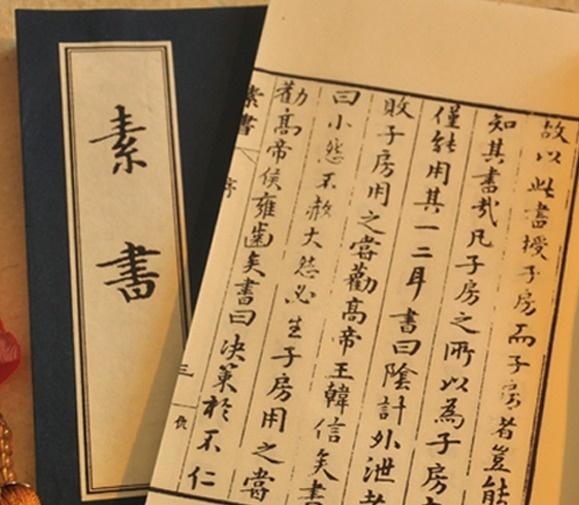 素書
故以此書授子房而子房者豈能
知其書哉凡子房之所以為子房
僅能用其一二耳書曰陰計外泄者
敗子房用之嘗勸高帝王韓信矣書
曰小怨不赦大怨必生子房用之嘗
勸高帝侯雍齒矣書曰決策於不仁
素書 序 三